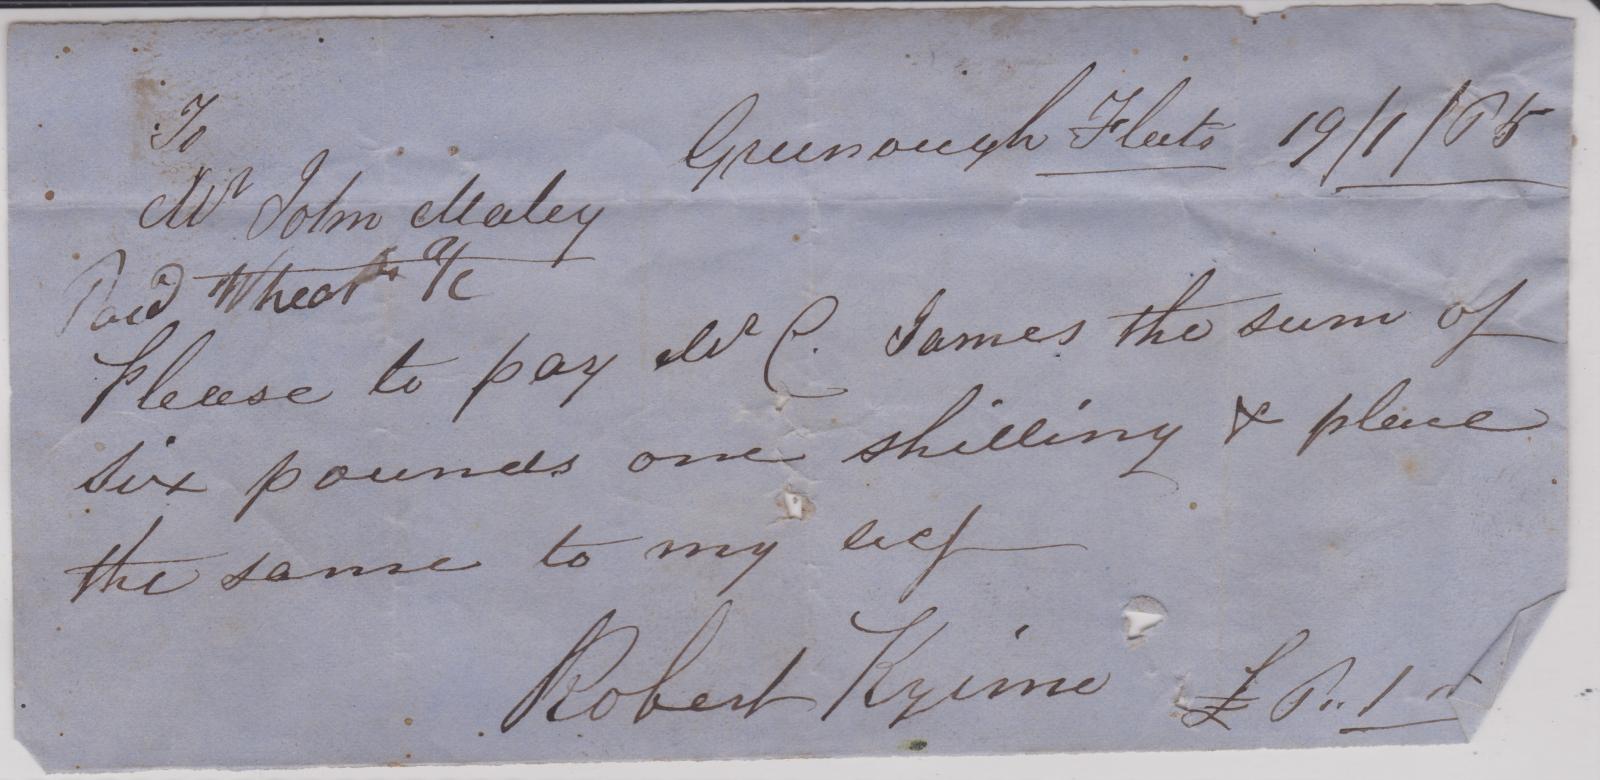 Greenough Flats 19/1/65
To
Mr John Maley
Paid Wheat a/c
Please to pay Mr C. James the sum of
six pounds one shilling & place
the same to my acf
Robert Kyime £6..1